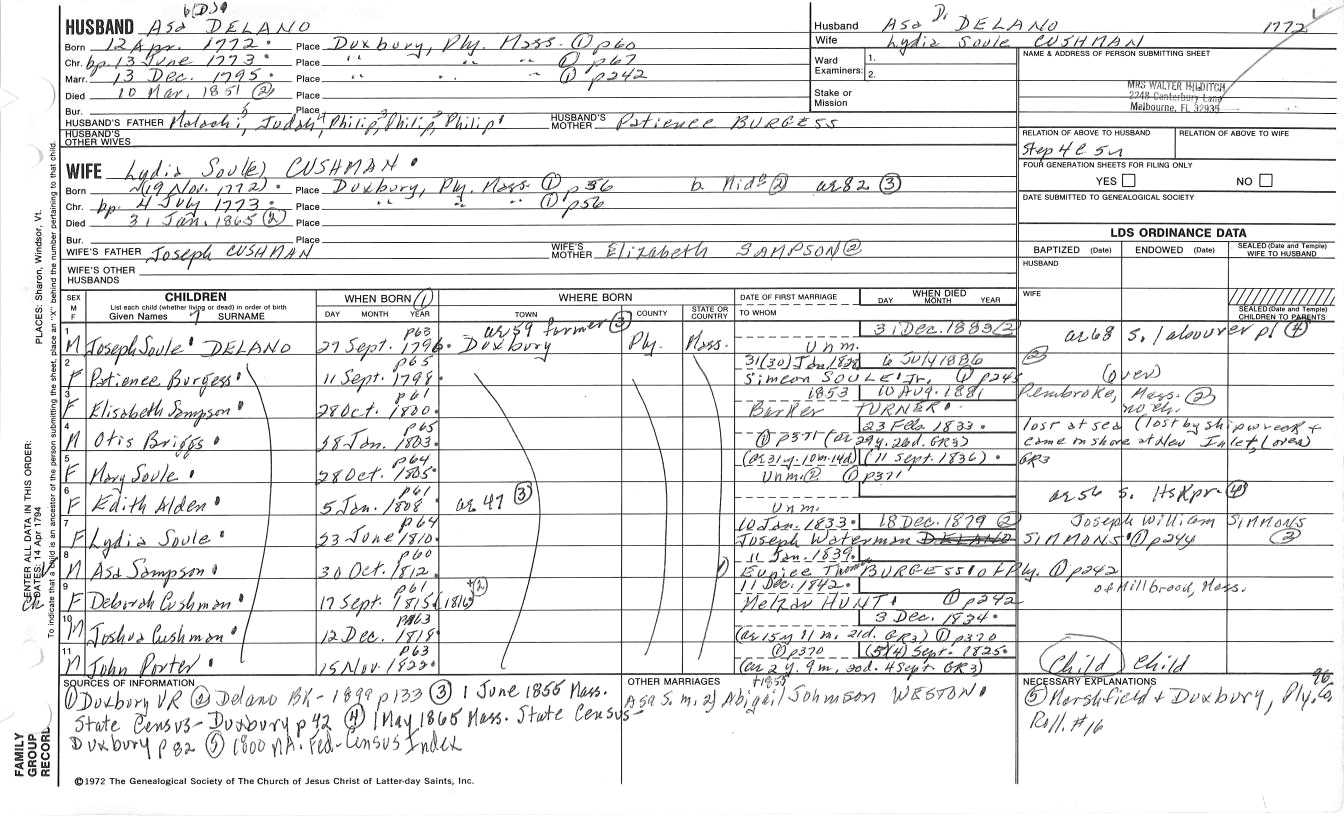 6(D.)
HUSBAND Asa DELANO
Born 12 Apr. 1772. Place Duxbury, Ply. Mass. ① p60
Chr. bp. 13 June 1773. Place " " " ① p67
Marr. 13 Dec. 1795. Place " " " ① p242
Died 10 Mar. 1851 ② Place
Bur. Place
HUSBAND'S FATHER Malachi, Judah, Philip, Philip, Philip HUSBAND'S MOTHER Patience BURGESS
HUSBAND'S OTHER WIVES
Husband Asa D. DELANO 1772
Wife Lydia Soule CUSHMAN
Ward Examiners: 1.
2.
Stake or Mission
NAME & ADDRESS OF PERSON SUBMITTING SHEET
MRS WALTER HILDITCH
2248 Canterbury Lane
Melbourne, FL 32935
RELATION OF ABOVE TO HUSBAND RELATION OF ABOVE TO WIFE
FOUR GENERATION SHEETS FOR FILING ONLY
YES NO
DATE SUBMITTED TO GENEALOGICAL SOCIETY
WIFE Lydia Soul(e) CUSHMAN
Born (19 Nov. 1772) Place Duxbury, Ply. Mass. ① p56 b. Nids ② ae82 ③
Chr. bp. 4 July 1773. Place " " " ① p56
Died 31 Jan. 1865 ② Place
Bur. Place
WIFE'S FATHER Joseph CUSHMAN WIFE'S MOTHER Elizabeth SAMPSON ②
WIFE'S OTHER HUSBANDS
LDS ORDINANCE DATA
BAPTIZED (Date) ENDOWED (Date) SEALED (Date and Temple) WIFE TO HUSBAND
HUSBAND
WIFE
SEALED (Date and Temple) CHILDREN TO PARENTS
SEX M F CHILDREN List each child (whether living or dead) in order of birth Given Names SURNAME
WHEN BORN ① DAY MONTH YEAR
WHERE BORN TOWN COUNTY STATE OR COUNTRY
DATE OF FIRST MARRIAGE TO WHOM
WHEN DIED DAY MONTH YEAR
1 M Joseph Soule DELANO p63 27 Sept. 1796. ae59 farmer ③ Duxbury Ply. Mass. Unm. 31 Dec. 1883 ② ae68 S. labourer p1 ④
2 F Patience Burgess p65 11 Sept. 1798. 31(30) Jan. 1828 6 July 1886 ② (over)
Simeon SOULE Jr. ① p245
3 F Elisabeth Sampson p61 28 Oct. 1800. 1853 10 Aug. 1881 Pembroke, Mass. ② no ch.
Barker TURNER.
4 M Otis Briggs p65 28 Jan. 1803. 23 Feb 1833. lost at sea (lost by shipwreck + came on shore at New Inlet, (over)
① p371 (ae 29y. 26d. GR3)
5 F Mary Soule p64 28 Oct. 1805. (ae 31y. 10m. 14d) (11 Sept. 1836). GR3
Unm. ② ① p371
6 F Edith Alden p61 5 Jan. 1808. ae 47 ③ Unm. ae56 S. HsKpr. ④
7 F Lydia Soule p64 23 June 1810. 10 Jan. 1833. 18 Dec. 1879 ② Joseph William SIMMONS ②
Joseph Waterman DELANO SIMMONS ① p244
8 M Asa Sampson p60 30 Oct. 1812. 11 Jan. 1839.
Eunice Thomas BURGESS of Ply. ① p242
9 F Deborah Cushman p61 17 Sept. 1815 (1816) ② 11 Dec. 1842. of Millbrood, Mass.
Melzar HUNT ① p242
10 M Joshua Cushman p63 12 Dec. 1818. 3 Dec. 1834.
(ae 15y 11m. 21d. GR3) ① p370
11 M John Porter p63 15 Nov. 1822. ① p370 (5)(4) Sept. 1825. Child Child
(ae 2y. 9m, 20d. 4 Sept. GR3)
SOURCES OF INFORMATION
① Duxbury VR ② Delano BK - 1899 p133 ③ 1 June 1855 Mass.
State Census - Duxbury p42 ④ 1 May 1865 Mass. State Census
Duxbury p82 ⑤ 1800 MA. Fed-Census Index
OTHER MARRIAGES
+1853
Asa S. m. 2) Abigail Johnson WESTON.
NECESSARY EXPLANATIONS
⑤ Marshfield & Duxbury, Ply. Co
Roll. #16
©1972 The Genealogical Society of The Church of Jesus Christ of Latter-day Saints, Inc.
FAMILY GROUP RECORD
ENTER ALL DATA IN THIS ORDER:
DATES: 14 Apr 1794
PLACES: Sharon, Windsor, Vt.
To indicate that a child is an ancestor of the person submitting the sheet, place an "X" behind the number pertaining to that child.